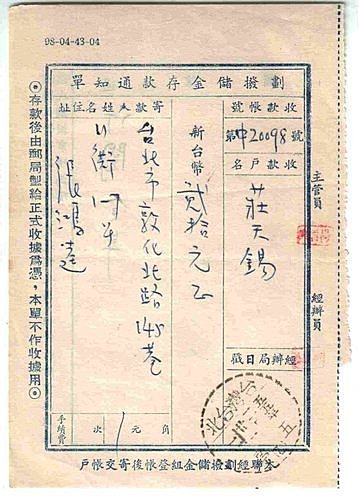 98-04-43-04
單知通款存金儲撥劃
收款帳號
第中20098號
收款戶名
莊天錫
經辦局日戳
新台幣
貳拾元正
寄款人姓名住址
台北市敦化北路145巷
張鴻達
手續費
次
元
角
主管員
經辦員
◎存款後由郵局製給正式收據為憑，本單不作收據用◎
戶帳交寄後帳登組金儲撥劃經聯